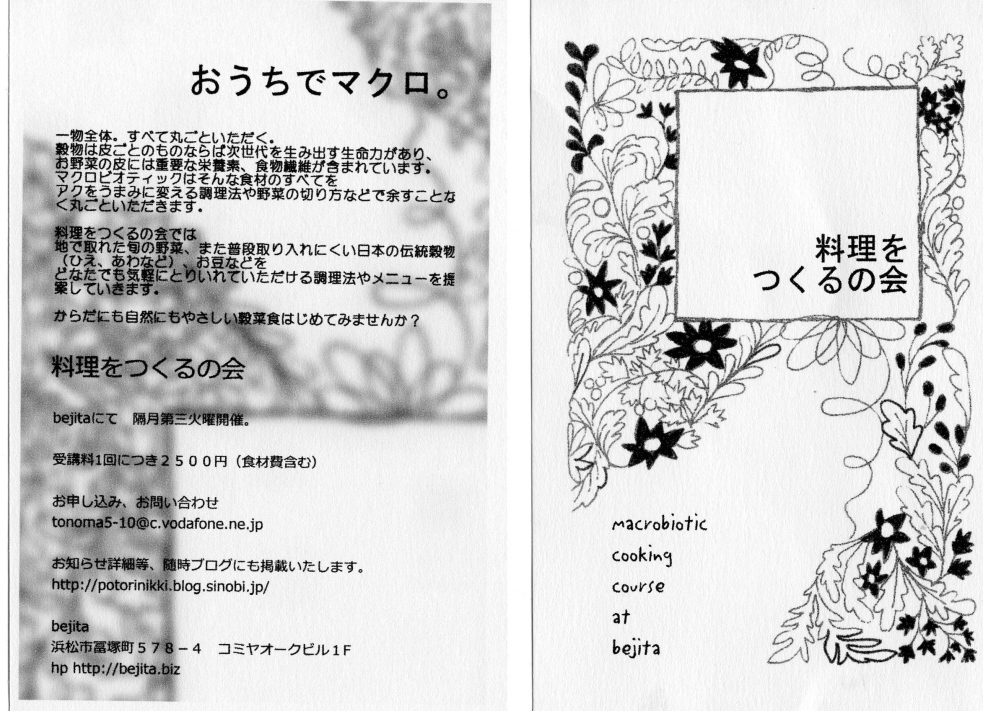 おうちでマクロ。
一物全体。すべて丸ごといただく。
穀物は皮ごとのものならば次世代を生み出す生命力があり、
お野菜の皮には重要な栄養素、食物繊維が含まれています。
マクロビオティックはそんな食材のすべてを
アクをうまみに変える調理法や野菜の切り方などで余すことな
く丸ごといただきます。
料理をつくるの会では
地で取れた旬の野菜、また普段取り入れにくい日本の伝統穀物
（ひえ、あわなど）、お豆などを
どなたでも気軽にとりいれていただける調理法やメニューを提
案していきます。
からだにも自然にもやさしい穀菜食はじめてみませんか？
料理をつくるの会
bejitaにて　隔月第三火曜開催。
受講料1回につき２５００円（食材費含む）
お申し込み、お問い合わせ
tonoma5-10@c.vodafone.ne.jp
お知らせ詳細等、随時ブログにも掲載いたします。
http://potorinikki.blog.sinobi.jp/
bejita
浜松市冨塚町５７８－４　コミヤオークビル１F
hp http://bejita.biz
料理を
つくるの会
macrobiotic
cooking
course
at
bejita